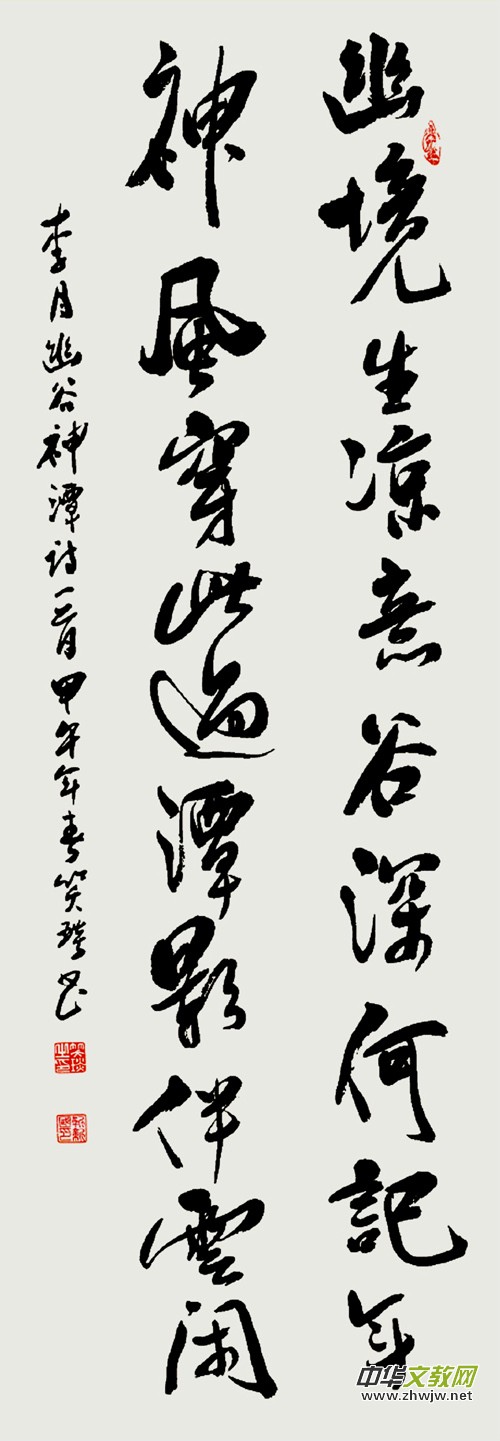 幽境生凉意谷深何記年
神風穿此過潭影伴雲闲
李月幽谷神潭诗一首甲午年春笑琰书
中华文教网
www.zhwjw.net